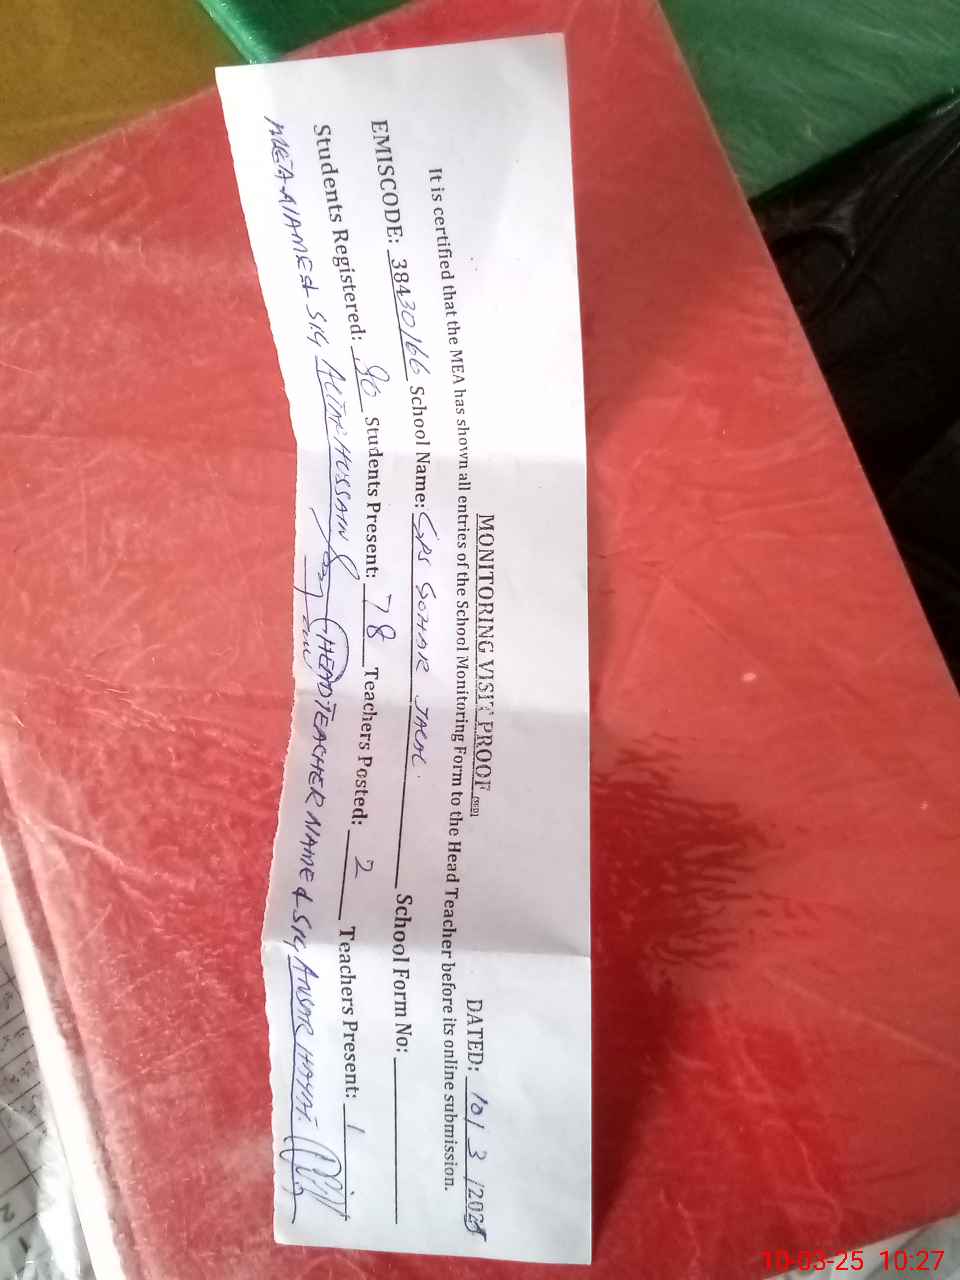 MONITORING VISIT PROOF
DATED: 10/3/2025
It is certified that the MEA has shown all entries of the School Monitoring Form to the Head Teacher before its online submission.
EMISCODE: 38430166 School Name: GPS GOHAR School Form No:
Students Registered: 90 Students Present: 78 Teachers Posted: 2 Teachers Present: 1
NAME & SIG ALTAF HUSSAIN HEAD TEACHER NAME & SIG ANSAR HAYAT
10-03-25 10:27